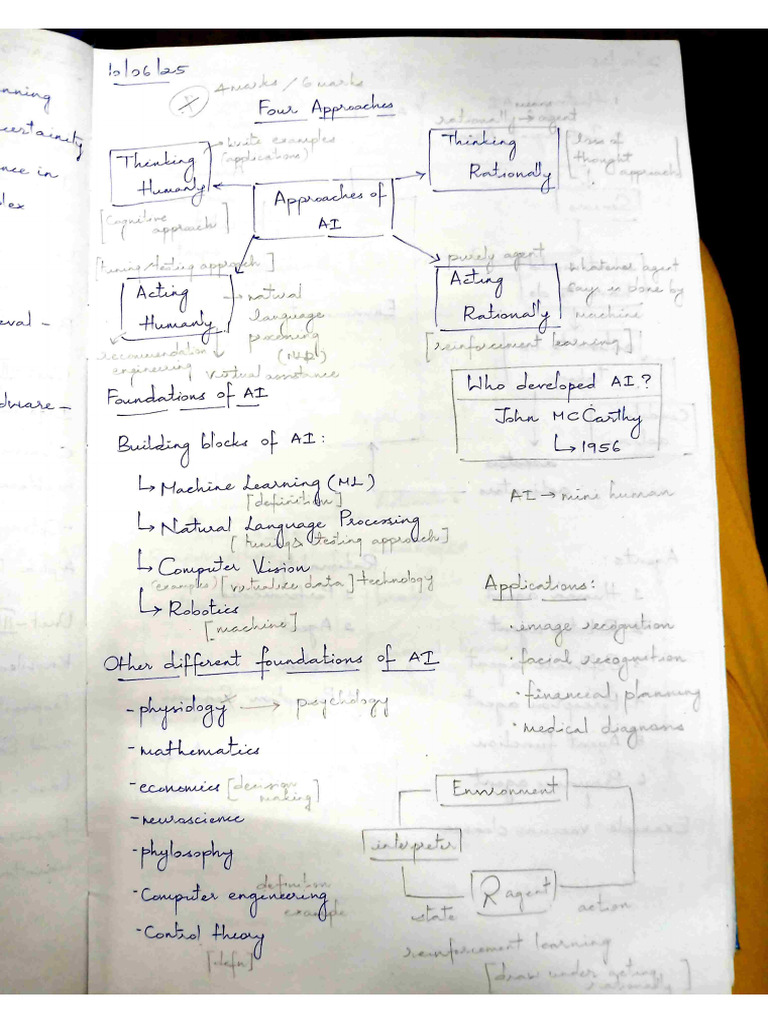 nning
certainity
nce in
lex
eval -
dware -
12/06/25
4 marks / 6 marks
Four Approaches
means
rationally → agent
Thinking
Humanly
→ write examples
(applications)
Thinking
Rationally
[laws of
thought
approach]
Approaches of
AI
[Cognitive
approach]
[turing/testing approach]
purely agent
Acting
Humanly
→ natural
language
processing
(NLP)
Acting
Rationally
whatever agent
says is done by
machine
[reinforcement learning]
recommendation
engineering
virtual assistance
Foundations of AI
Who developed AI?
John McCarthy
↳ 1956
Building blocks of AI:
↳ Machine Learning (ML)
[definition]
AI → mini human
↳ Natural Language Processing
[turing & testing approach]
↳ Computer Vision
(examples) [virtualize data] + technology
↳ Robotics
[machine]
Applications:
• image recognition
• facial recognition
• financial planning
• medical diagnosis
Other different foundations of AI
- physiology → psychology
- mathematics
- economics [decision
making]
- neuroscience
- phylosophy
- Computer engineering
definition
example
- Control theory
[defn]
Environment
interpreter
R agent
state
action
reinforcement learning
[draw under acting
rationally]